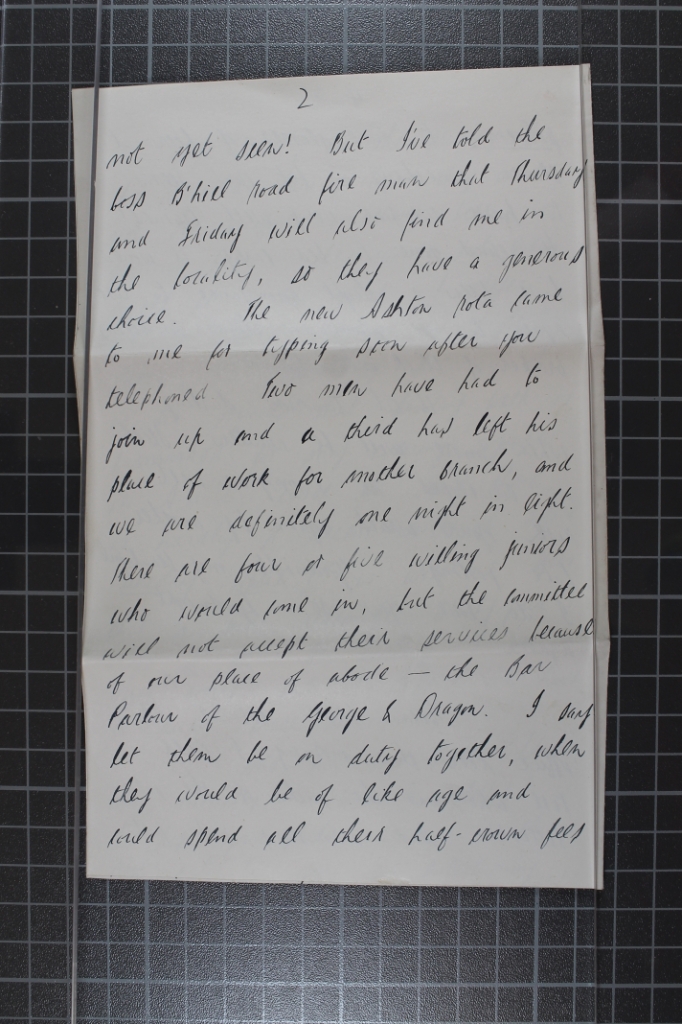 2
not yet seen! But I've told the
boss B'hill road fire man that Thursday
and Friday will also find me in
the locality, so they have a generous
choice. The new Ashton rota came
to me for typing soon after you
telephoned Two men have had to
join up and a third has left his
place of work for another branch, and
we are definitely one night in eight.
There are four or five willing juniors
who would come in, but the committee
will not accept their services because
of our place of abode — the Bar
Parlour of the George & Dragon. I say
let them be on duty together, when
they would be of like age and
could spend all their half-crown fees